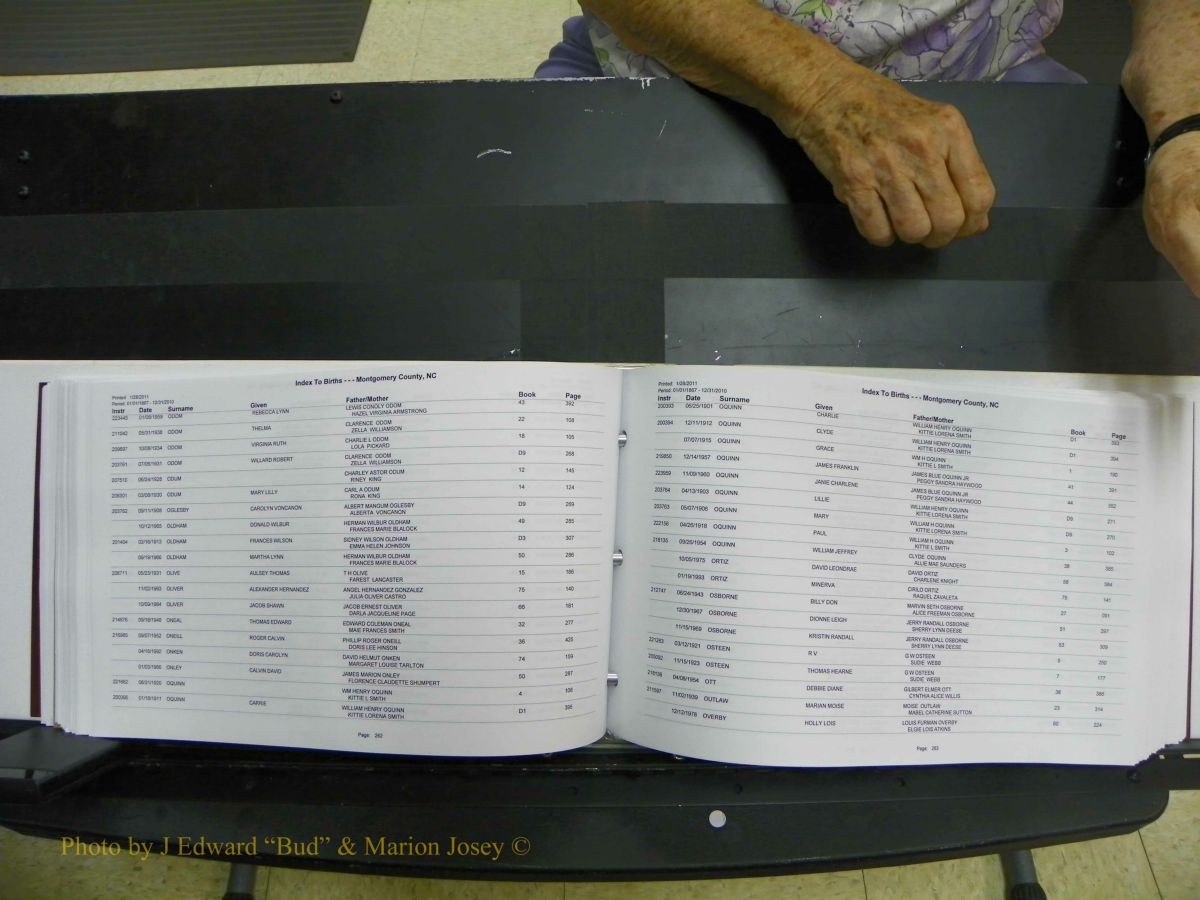 Index To Births - - - Montgomery County, NC
Printed: 1/28/2011
Period: 01/01/1867 - 12/31/2010
Instr Date Surname Given Father/Mother Book Page
ODOM REBECCA LYNN LEWIS CONOLY ODOM 43 392
HAZEL VIRGINIA ARMSTRONG
ODOM THELMA CLARENCE ODOM 22 108
ZELLA WILLIAMSON
ODOM VIRGINIA RUTH CHARLIE L ODOM 18 105
LOLA PICKARD
ODOM WILLARD ROBERT CLARENCE ODOM D9 268
ZELLA WILLIAMSON
ODUM CHARLEY ASTOR ODUM 12 145
RINEY KING
ODUM MARY LILLY CARL A ODUM 14 124
RONA KING
OGLESBY CAROLYN VONCANON ALBERT MANGUM OGLESBY D9 269
ALBERTA VONCANON
10/12/1965 OLDHAM DONALD WILBUR HERMAN WILBUR OLDHAM 49 285
FRANCES MARIE BLALOCK
201404 OLDHAM FRANCES WILSON SIDNEY WILSON OLDHAM D3 307
EMMA HELEN JOHNSON
09/19/1966 OLDHAM MARTHA LYNN HERMAN WILBUR OLDHAM 50 286
FRANCES MARIE BLALOCK
05/23/1931 OLIVE AULSEY THOMAS T H OLIVE 15 186
FAREST LANCASTER
11/02/1993 OLIVER ALEXANDER HERNANDEZ ANGEL HERNANDEZ GONZALEZ 75 140
JULIA OLIVER CASTRO
10/09/1984 OLIVER JACOB SHAWN JACOB ERNEST OLIVER 66 181
DARLA JACQUELINE PAGE
ONEAL THOMAS EDWARD EDWARD COLEMAN ONEAL 32 277
MAIE FRANCES SMITH
09/07/1952 ONEILL ROGER CALVIN PHILLIP ROGER ONEILL 36 425
DORIS LEE HINSON
04/10/1992 ONKEN DORIS CAROLYN DAVID HELMUT ONKEN 74 159
MARGARET LOUISE TARLTON
01/03/1966 ONLEY CALVIN DAVID JAMES MARION ONLEY 50 287
FLORENCE CLAUDETTE SHUMPERT
OQUINN WM HENRY OQUINN 4 108
KITTIE L SMITH
01/18/1911 OQUINN CARRIE WILLIAM HENRY OQUINN D1 395
KITTIE LORENA SMITH
Page: 262
Printed: 1/28/2011
Period: 01/01/1867 - 12/31/2010
Index To Births - - - Montgomery County, NC
Instr Date Surname Given Father/Mother Book Page
200393 06/25/1901 OQUINN CHARLIE WILLIAM HENRY OQUINN D1 393
KITTIE LORENA SMITH
200394 12/11/1912 OQUINN CLYDE WILLIAM HENRY OQUINN D1 394
KITTIE LORENA SMITH
07/07/1915 OQUINN GRACE WM H OQUINN 1 190
KITTIE L SMITH
219850 12/14/1957 OQUINN JAMES FRANKLIN JAMES BLUE OQUINN JR 41 391
PEGGY SANDRA HAYWOOD
223959 11/09/1960 OQUINN JANIE CHARLENE JAMES BLUE OQUINN JR 44 352
PEGGY SANDRA HAYWOOD
203764 04/13/1903 OQUINN LILLIE WILLIAM HENRY OQUINN D9 271
KITTIE LORENA SMITH
203763 05/07/1906 OQUINN MARY WILLIAM H OQUINN D9 270
KITTIE LORENA SMITH
222156 04/26/1918 OQUINN PAUL WILLIAM H OQUINN 3 102
KITTIE L SMITH
218135 09/25/1954 OQUINN WILLIAM JEFFREY CLYDE OQUINN 38 385
ALLIE MAE SAUNDERS
10/05/1975 ORTIZ DAVID LEONDRAE DAVID ORTIZ 58 384
CHARLENE KNIGHT
01/19/1993 ORTIZ MINERVA CIRILO ORTIZ 75 141
RAQUEL ZAVALETA
212747 06/24/1943 OSBORNE BILLY DON MARVIN SETH OSBORNE 27 091
ALICE FREEMAN OSBORNE
12/30/1967 OSBORNE DIONNE LEIGH JERRY RANDALL OSBORNE 51 297
SHERRY LYNN DEESE
11/15/1969 OSBORNE KRISTIN RANDALL JERRY RANDALL OSBORNE 53 309
SHERRY LYNN DEESE
221263 03/12/1921 OSTEEN R V G W OSTEEN 250
SUDIE WEBB
11/15/1923 OSTEEN THOMAS HEARNE G W OSTEEN 7 177
SUDIE WEBB
218136 04/08/1954 OTT DEBBIE DIANE GILBERT ELMER OTT 38 386
CYNTHIA ALICE WILLIS
211597 11/02/1939 OUTLAW MARIAN MOISE MOISE OUTLAW 23 314
MABEL CATHERINE SUTTON
12/12/1978 OVERBY HOLLY LOIS LOUIS FURMAN OVERBY 60 224
ELGIE LOIS ATKINS
Page: 263
Photo by J Edward “Bud” & Marion Josey ©